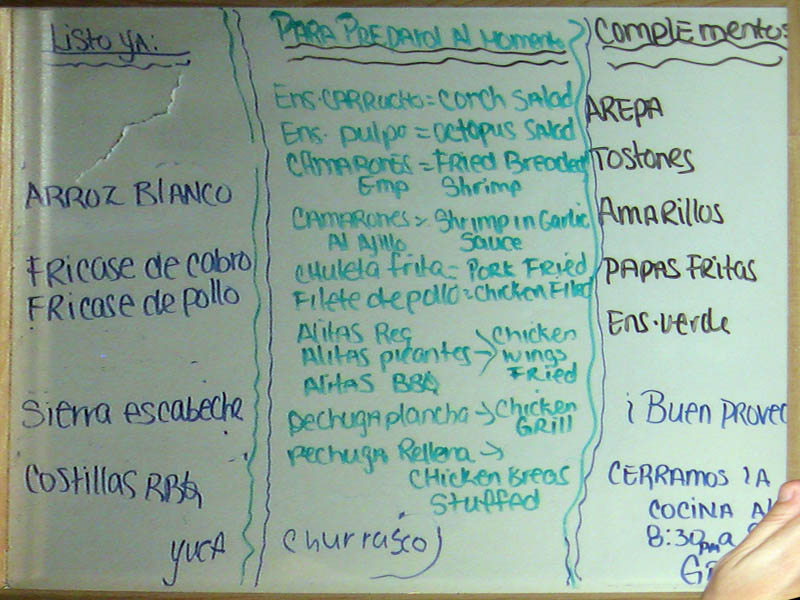 Listo YA:
ARROZ BlANCO
FRicase de cabro
FRicase de pollo
Sierra escabeche
Costillas BBQ
YUCA
PARA PREPARAR Al Momento
Ens. CARRUCHO = Conch Salad
Ens. pulpo = Octopus Salad
CAMARONES = Fried Breaded
Emp Shrimp
CAMARONES = Shrimp in Garlic
Al Ajillo Sauce
Chuleta frita = Pork Fried
Filete de pollo = Chicken Filet
Alitas Reg Chicken
Alitas picantes wings
Alitas BBQ Fried
Pechuga plancha → Chicken
GRill
Pechuga Rellena →
CHicken Breas
Stuffed
Churrasco
Complementos
AREPA
Tostones
AMARillos
PAPAS FRitas
Ens. verde
¡Buen Provec
CERRAMOS lA
COCINA
8:30pm a